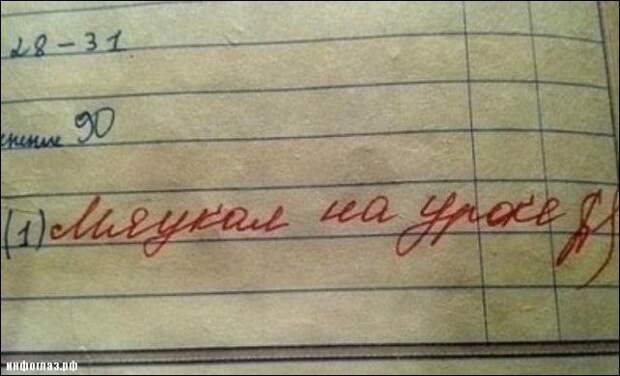 28-31
нение 90
(1) Мяукал на уроке
инфоглаз.рф